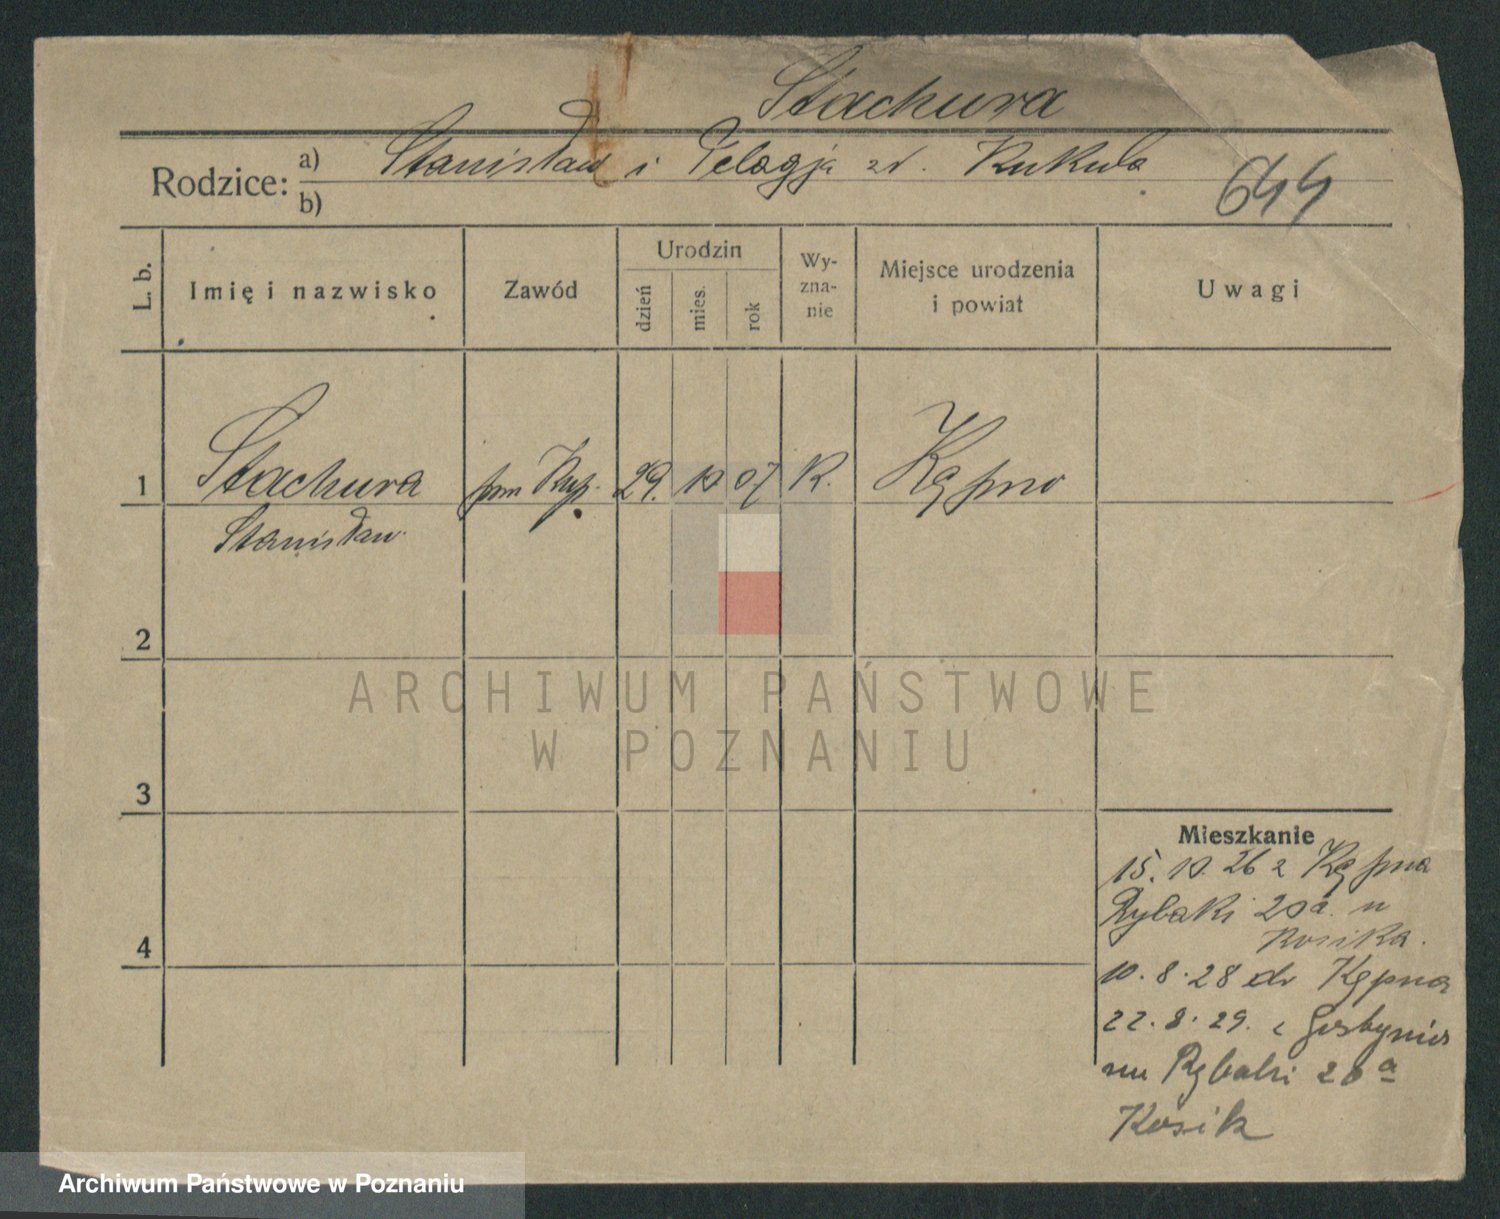 Stachura
Rodzice: a) Stanisław i Pelagja zd. Kukuła
b)
644
L. b.
Imię i nazwisko
Zawód
Urodzin
dzień
mies.
rok
Wy-
zna-
nie
Miejsce urodzenia
i powiat
Uwagi
1 Stachura 29. 10 07 R. Kępno
Stanisław
2
3
4
ARCHIWUM PAŃSTWOWE
W POZNANIU
Mieszkanie
15. 10. 26 z Kępna
Rybaki 20a. u
Kosika.
10. 8. 28 do Kępna
22. 8. 29. z
na Rybaki 20a
Kosik
Archiwum Państwowe w Poznaniu